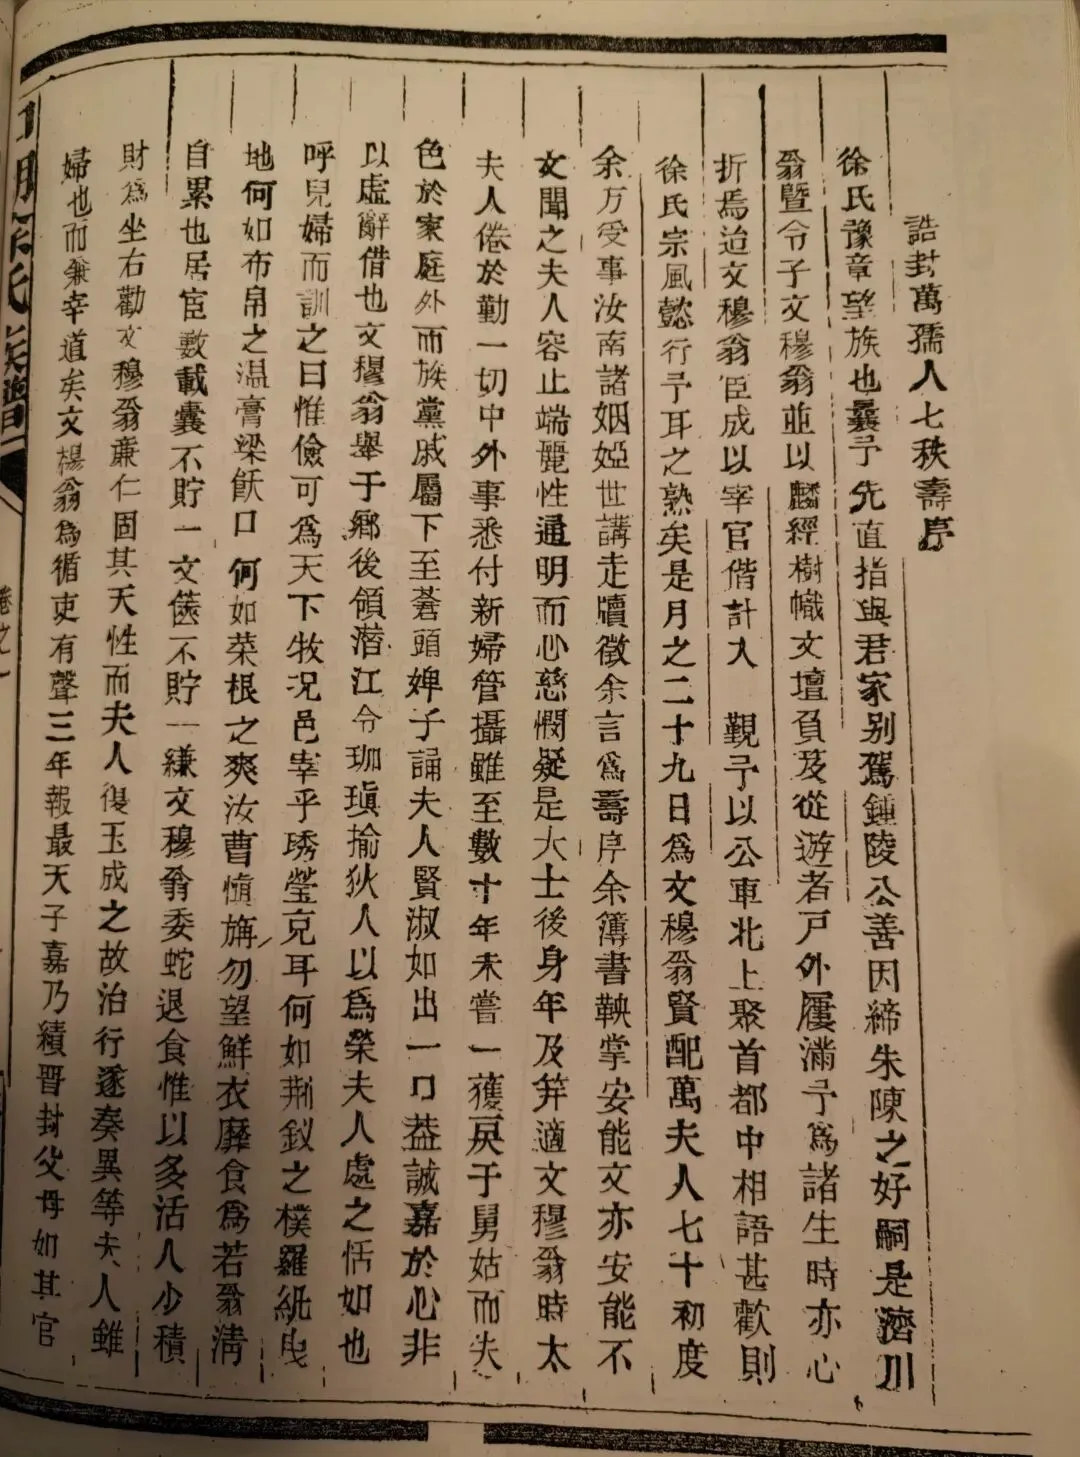 誥封萬孺人七秩壽序
徐氏豫章望族也曩予先直指與君家别駕鍾陵公善因締朱陳之好嗣是濟川
翁暨令子文穆翁並以麟經樹幟文壇負及從遊者戶外屨滿予爲諸生時亦心
折焉迨文穆翁臣成以宰官偕計入 觀予以公車北上聚首都中相語甚歡則
徐氏宗風懿行予耳之熟矣是月之二十九日爲文穆翁賢配萬夫人七十初度
余万受事汝南諸姻婭世講走牘徵余言爲壽序余簿書鞅掌安能文亦安能不
文聞之夫人容止端麗性通明而心慈憫疑是大士後身年及笄適文穆翁時太
夫人倦於勤一切中外事悉付新婦管攝雖至數十年未嘗一獲戾于舅姑而失
色於家庭外而族黨戚屬下至蒼頭婢子誦夫人賢淑如出一口益誠嘉於心非
以虛辭借也文穆翁舉于鄉後領潛江令珈瑱揄狄人以爲榮夫人處之恬如也
呼兒婦而訓之曰惟儉可爲天下牧况邑宰乎琇瑩克耳何如荆釵之樸羅紈曳
地何如布帛之溫膏梁飫口何如菜根之爽汝曹慎旃勿望鮮衣靡食爲若翁清
自累也居宦數載囊不貯一文篋不貯一縑文穆翁委蛇退食惟以多活人少積
財爲坐右勸文穆翁亷仁固其天性而夫人復玉成之故治行遂奏異等夫人雖
婦也而兼宰道矣文楊翁爲循吏有聲三年報最天子嘉乃績晋封父母如其官
徐氏
卷之一